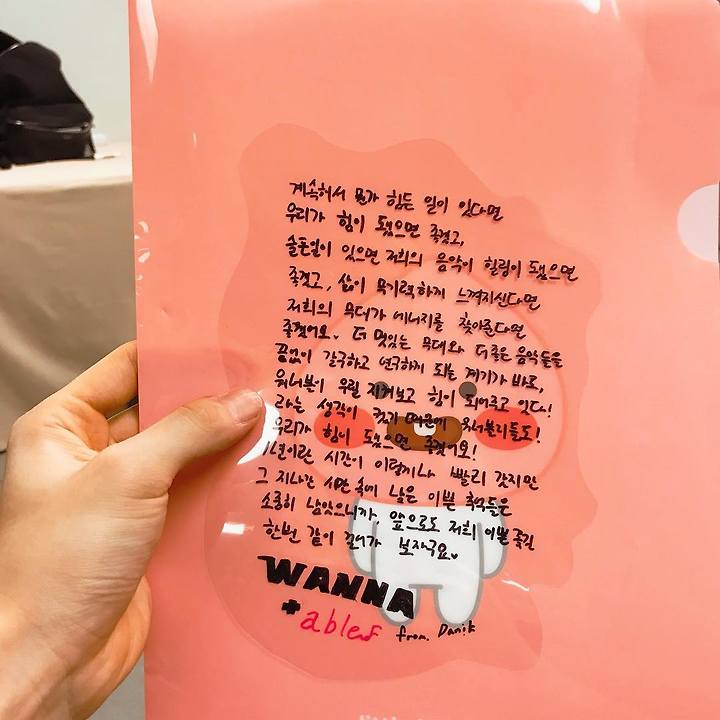 계속해서 뭔가 힘든 일이 있다면
우리가 힘이 됐으면 좋겠고,
슬픈일이 있으면 저희의 음악이 힐링이 됐으면
좋겠고, 삶이 무기력하게 느껴지신다면
저희의 무대가 에너지를 찾아준다면
좋겠어요. 더 멋있는 무대와 더 좋은 음악들을
끊임없이 갈구하고 연구하게 되는 계기가 바로,
워너블이 우릴 지켜보고 힘이 되어주고 있다!
라는 생각이 컸기 때문에 워너블리들도!
우리가 힘이 됐으면 좋겠어요!
1년이란 시간이 이렇게나 빨리 갔지만
그 지나간 시간 속에 남은 이쁜 추억들은
소중히 남았으니까, 앞으로도 저희 이쁜 추억
한번 같이 만들어가 보자구요♥
WANNA
able
from. Danik